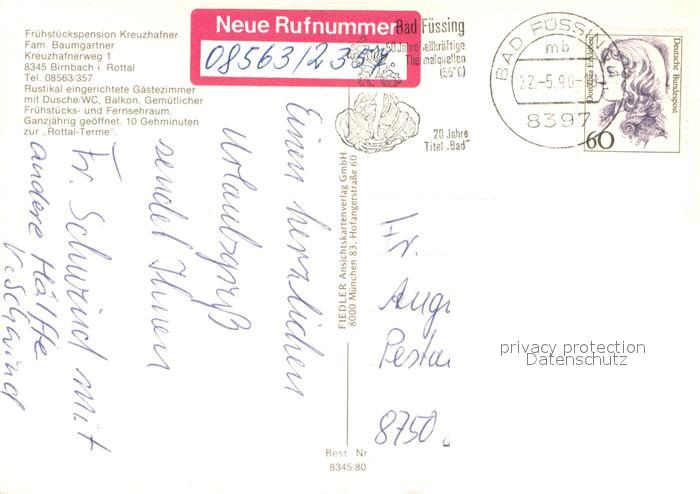 Frühstückspension Kreuzhafner
Fam. Baumgartner
Kreuzhafnerweg 1
8345 Birnbach i. Rottal
Tel. 08563/357
Rustikal eingerichtete Gästezimmer
mit Dusche/WC, Balkon. Gemütlicher
Frühstücks- und Fernsehraum.
Ganzjährig geöffnet. 10 Gehminuten
zur „Rottal-Terme".
Neue Rufnummer
08563/2357
Bad Füssing
50 Jahre heilkräftige
Thermalquellen
(56°C)
20 Jahre
Titel „Bad"
BAD FÜSSING
mb
22.-5.90-
8397
Deutsche Bundespost
Dorothea
60
Einen herzlichen
Urlaubsgruß
sendet Ihnen
Fr. Schwind mit
andere Hälfte
K. Schwind
FIEDLER Ansichtskartenverlag GmbH
8000 München 83, Hofangerstraße 60
Best. Nr
8345/80
Fr.
Aug
Pesta
8750
privacy protection
Datenschutz